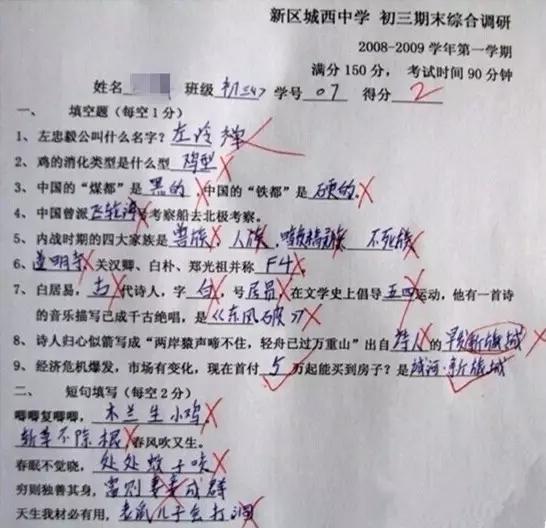 新区城西中学 初三期末综合调研
2008-2009 学年第一学期
满分 150 分， 考试时间 90 分钟
姓名 班级 初三47 学号 07 得分 2
一、 填空题（每空 1 分）
1、左忠毅公叫什么名字？左冷禅
2、鸡的消化类型是什么型 鸡型
3、中国的“煤都”是 黑的，中国的“铁都”是 硬的。
4、中国曾派 飞轮海号考察船去北极考察。
5、内战时期的四大家族是 兽族、人族、暗夜精灵族 不死族
6、道明寺、关汉卿、白朴、郑光祖并称 F4。
7、白居易，古代诗人，字 白，号 居易，在文学史上倡导 五四运动，他有一首诗
的音乐描写已成千古绝唱，是《东风破》
8、诗人归心似箭写成“两岸猿声啼不住，轻舟已过万重山”出自 诗人 的 新旗城
9、经济危机爆发，市场有变化，现在首付 5 万起能买到房子？是 城河·新旗城
二、 短句填写（每空 2 分）
唧唧复唧唧，木兰生小鸡。
斩草不除根，春风吹又生。
春眠不觉晓，处处蚊子咬
穷则独善其身，富则妻妾成群
天生我材必有用，老鼠儿子会打洞